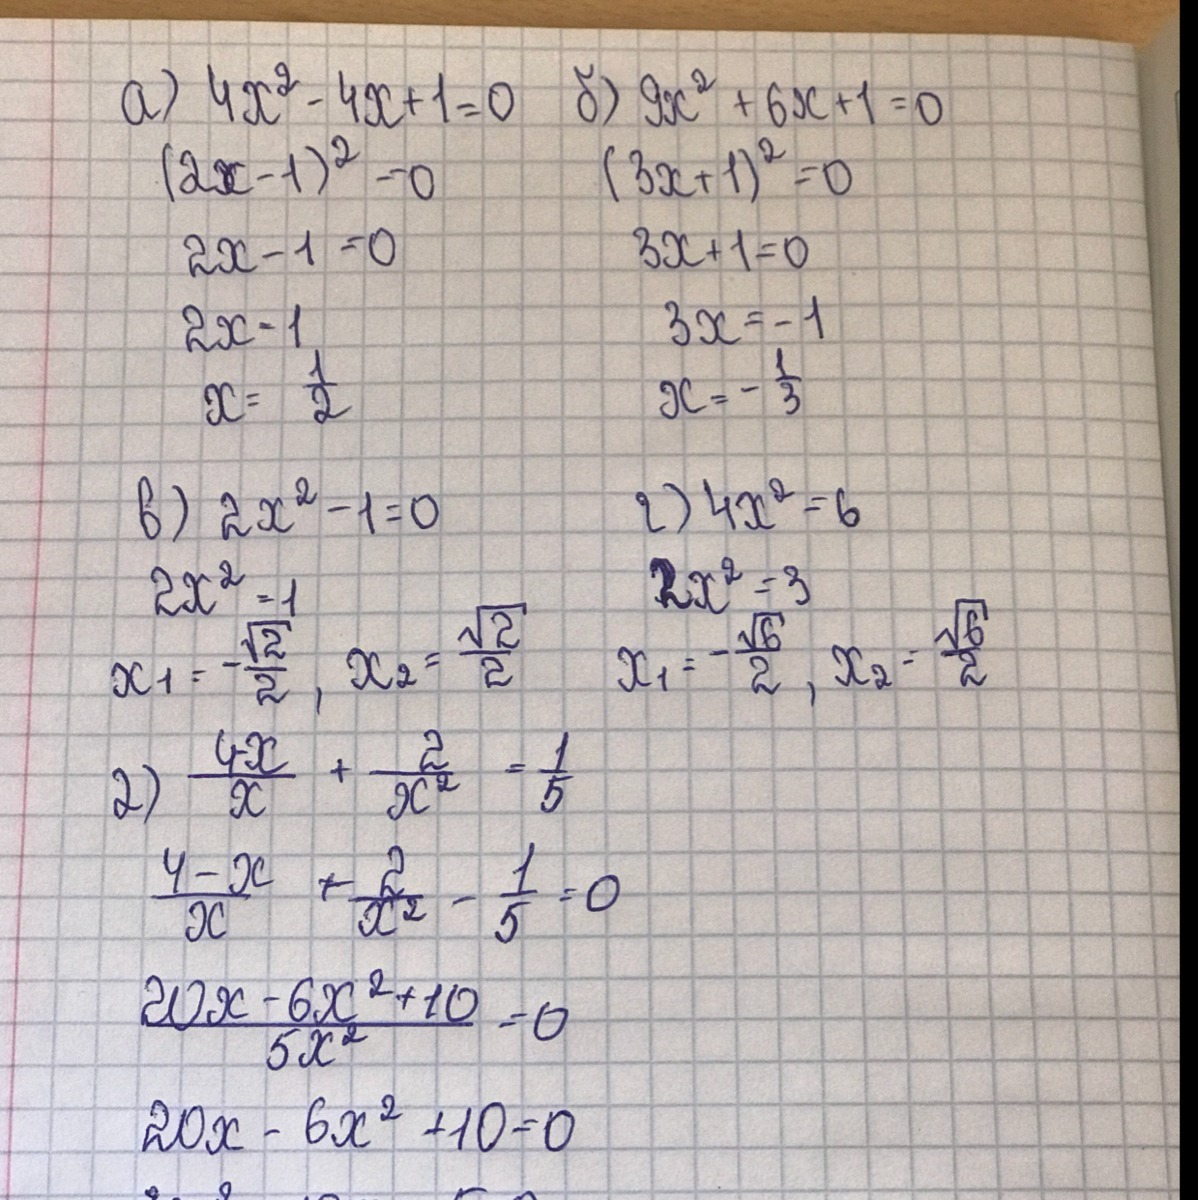 а) 4x² - 4x + 1 = 0
(2x - 1)² = 0
2x - 1 = 0
2x = 1
x = 1/2
б) 9x² + 6x + 1 = 0
(3x + 1)² = 0
3x + 1 = 0
3x = -1
x = -1/3
в) 2x² - 1 = 0
2x² = 1
x₁ = -√2/2, x₂ = √2/2
г) 4x² = 6
2x² = 3
x₁ = -√6/2, x₂ = √6/2
2) 4x/x + 2/x² = 1/5
4-x/x + 2/x² - 1/5 = 0
20x - 6x² + 10/5x² = 0
20x - 6x² + 10 = 0